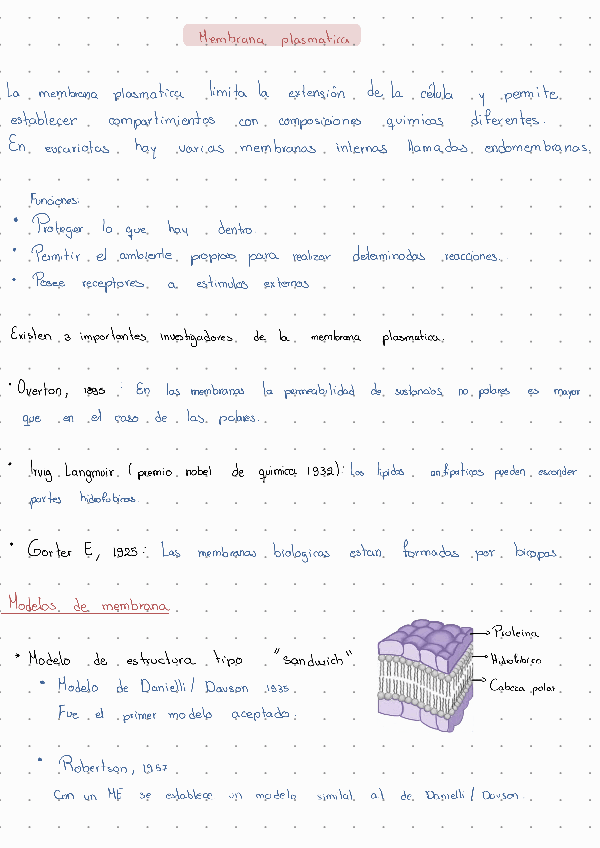 Membrana plasmatica
La membrana plasmatica limita la extensión de la célula y permite
establecer compartimientos con composiciones quimicas diferentes.
En eucariotas hay varias membranas internas llamadas endomembranas.
Funciones:
• Proteger lo que hay dentro
• Permitir el ambiente propioso para realizar determinadas reacciones.
• Posee receptores a estimulos externos
Existen 3 importantes investigadores de la membrana plasmatica.
• Overton, 1895 : En las membranas la permeabilidad de sustancias no polares es mayor
que en el caso de las polares.
• Irvig Langmuir (premio nobel de quimica 1932): Los lipidos antipaticos pueden esconder
partes hidrofobicas
• Gorter E, 1925: Las membranas biologicas estan formadas por bicapas.
Modelos de membrana
• Modelo de estructura tipo "sandwich"
• Modelo de Danielli / Davson 1935
Fue el primer modelo aceptado.
Proteina
Hidrofobico
Cabeza polar
• Robertson, 1957
Con un ME se establece un modelo similar al de Danielli / Davson